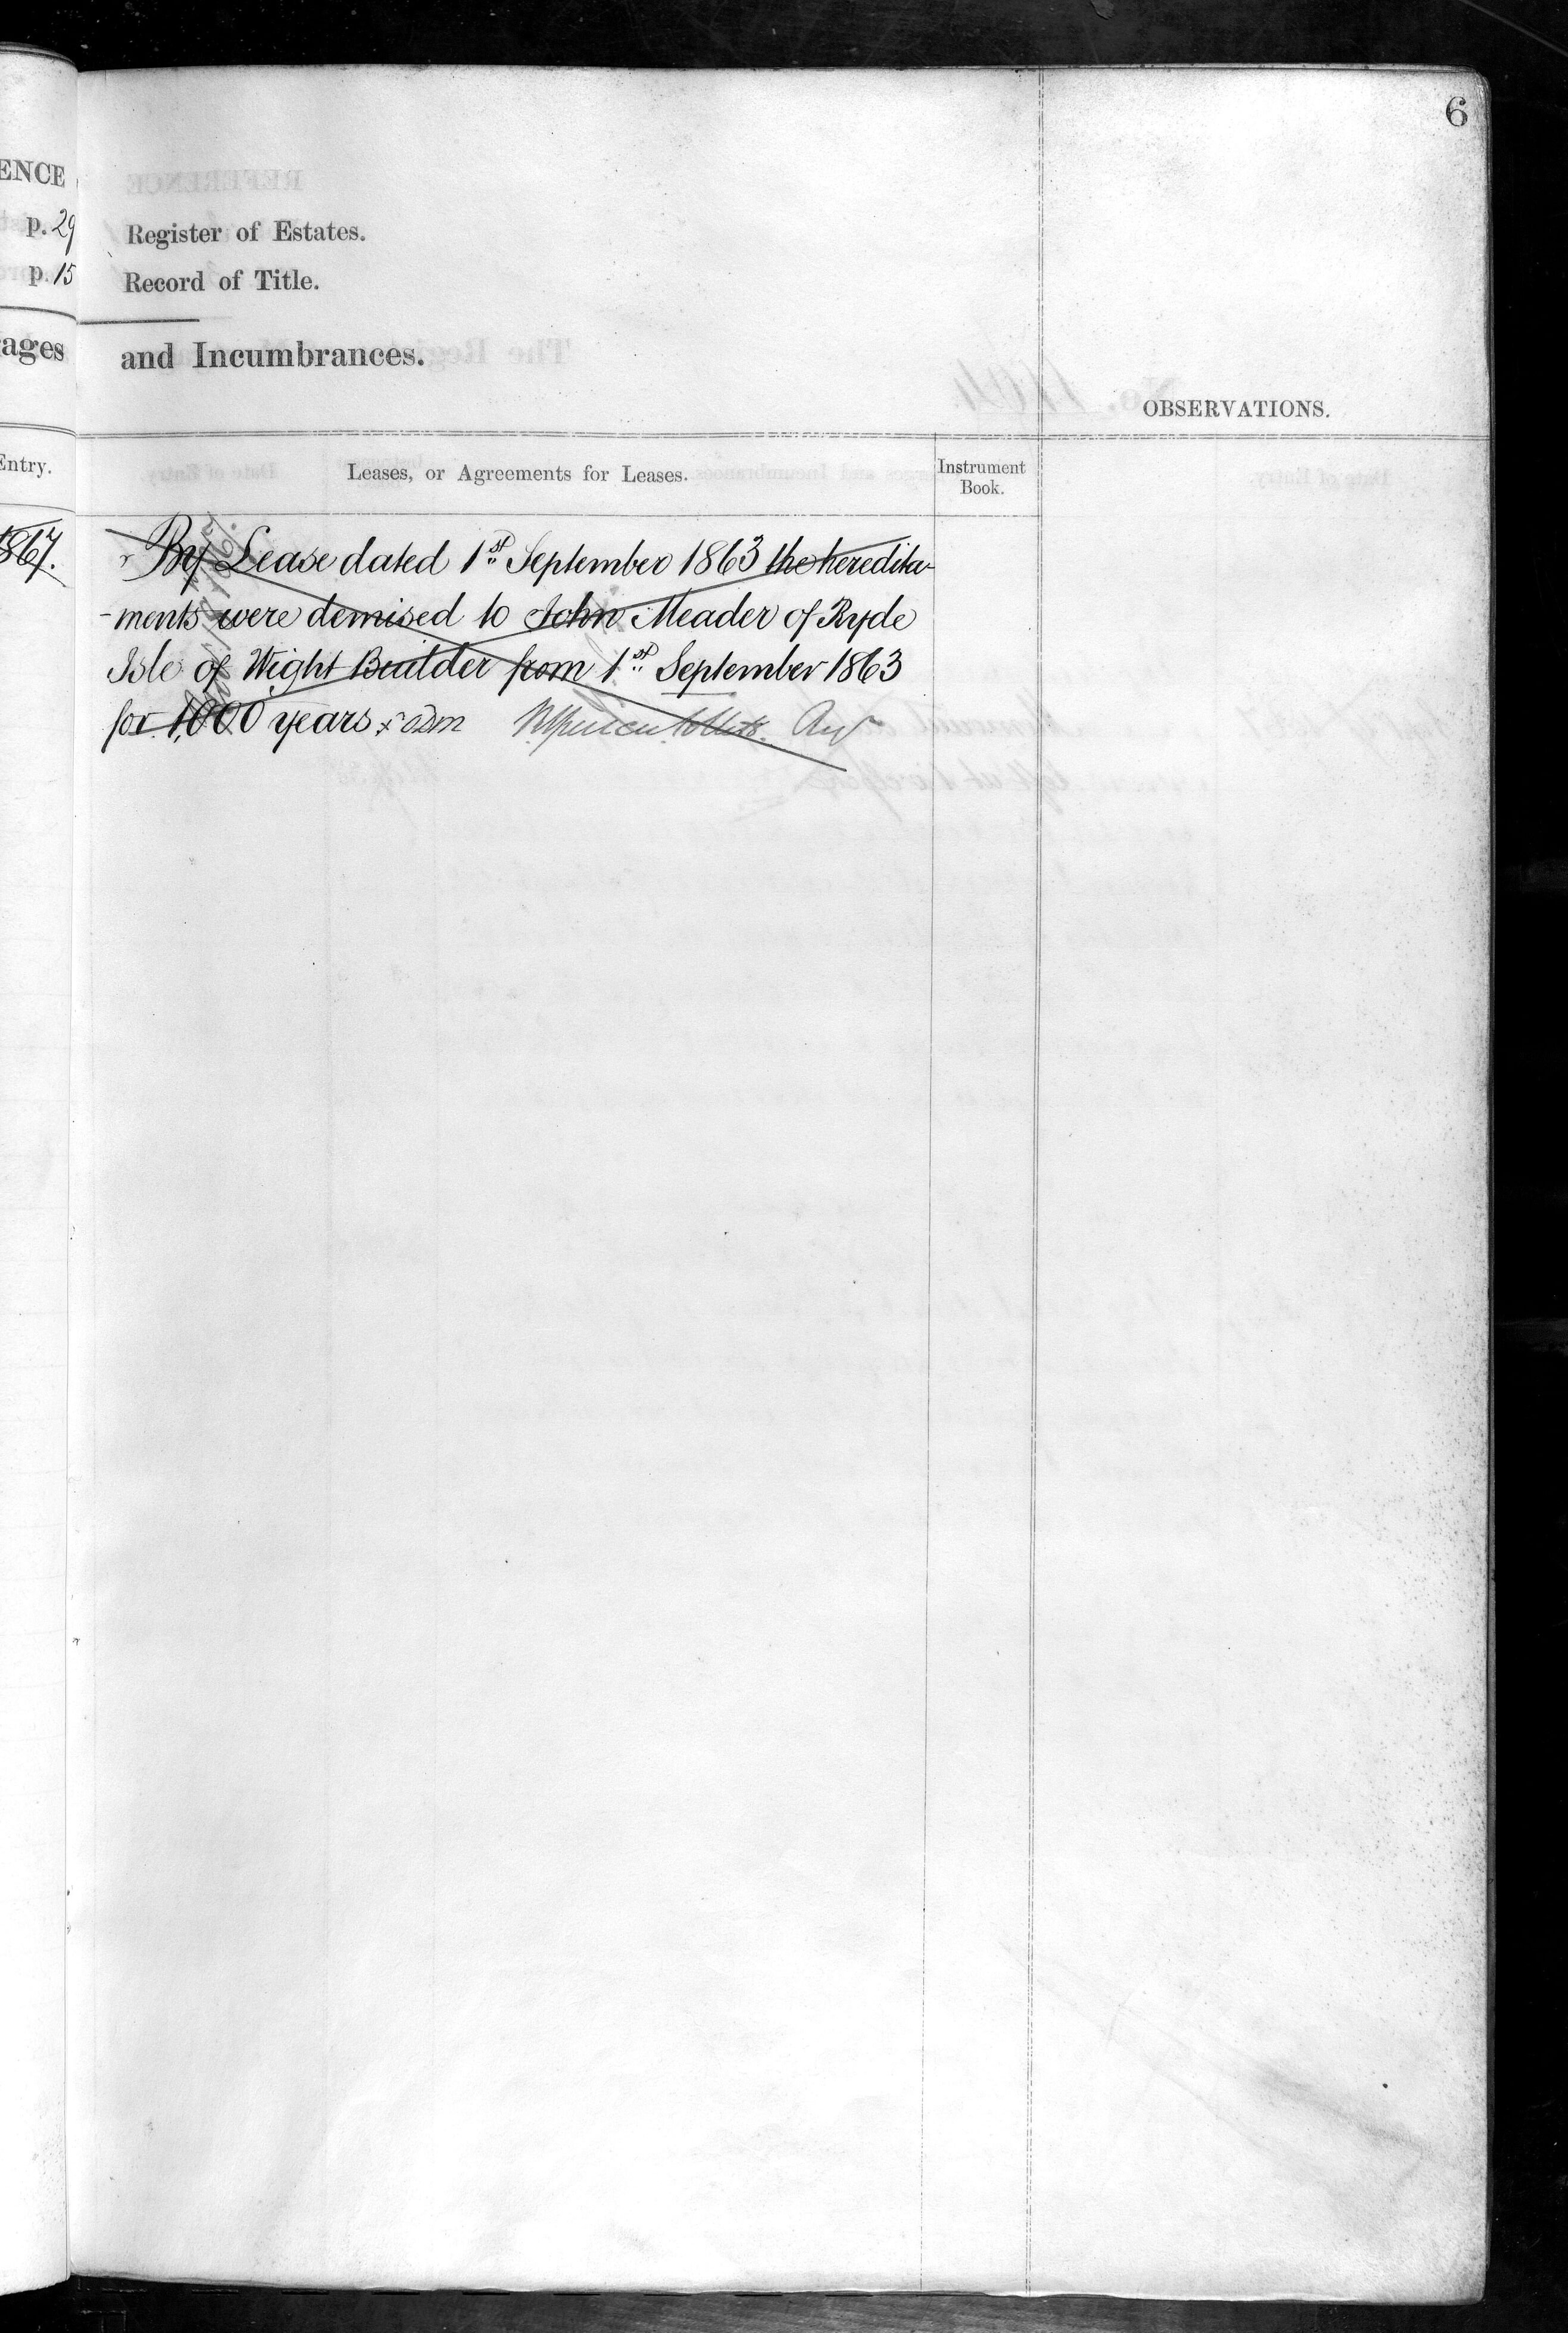 6
ENCE
p. 29
Register of Estates.
p. 15
Record of Title.
ages
and Incumbrances.
OBSERVATIONS.
Entry.
Leases, or Agreements for Leases.
Instrument
Book.
1867.
By Lease dated 1st September 1863 the heredita-
-ments were demised to John Meader of Ryde
Isle of Wight Builder from 1st September 1863
for 1000 years